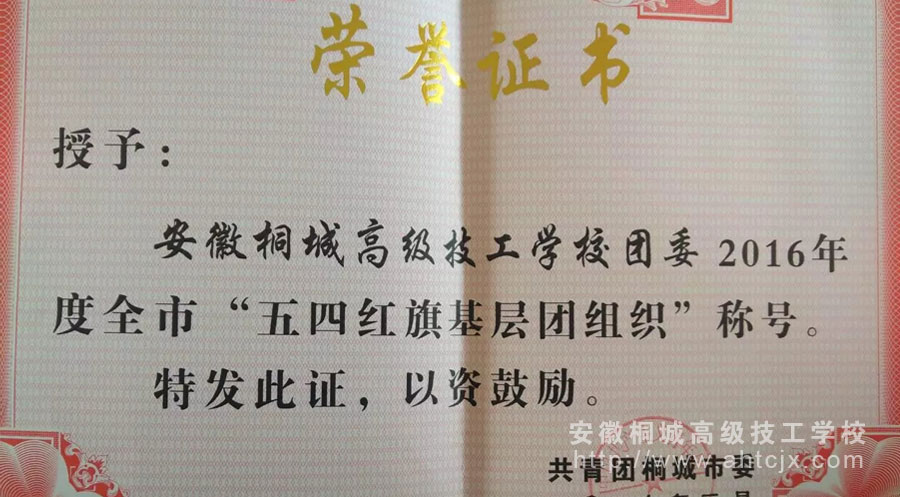 荣誉证书
授予：
安徽桐城高级技工学校团委 2016年
度全市“五四红旗基层团组织”称号。
特发此证，以资鼓励。
安徽桐城高级技工学校
http://www.ahtcjx.com
共青团桐城市委